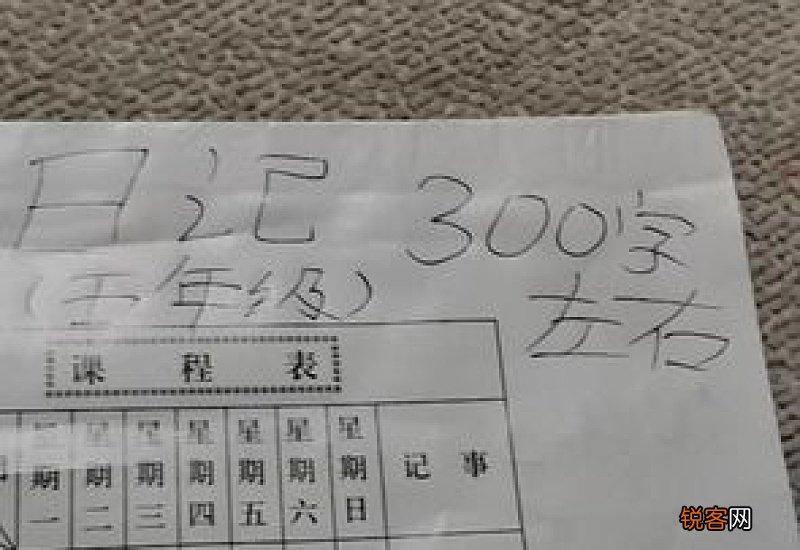 日记 300字
(五年级) 左右
课程表
星期一 星期二 星期三 星期四 星期五 星期六 星期日 记事
锐客网